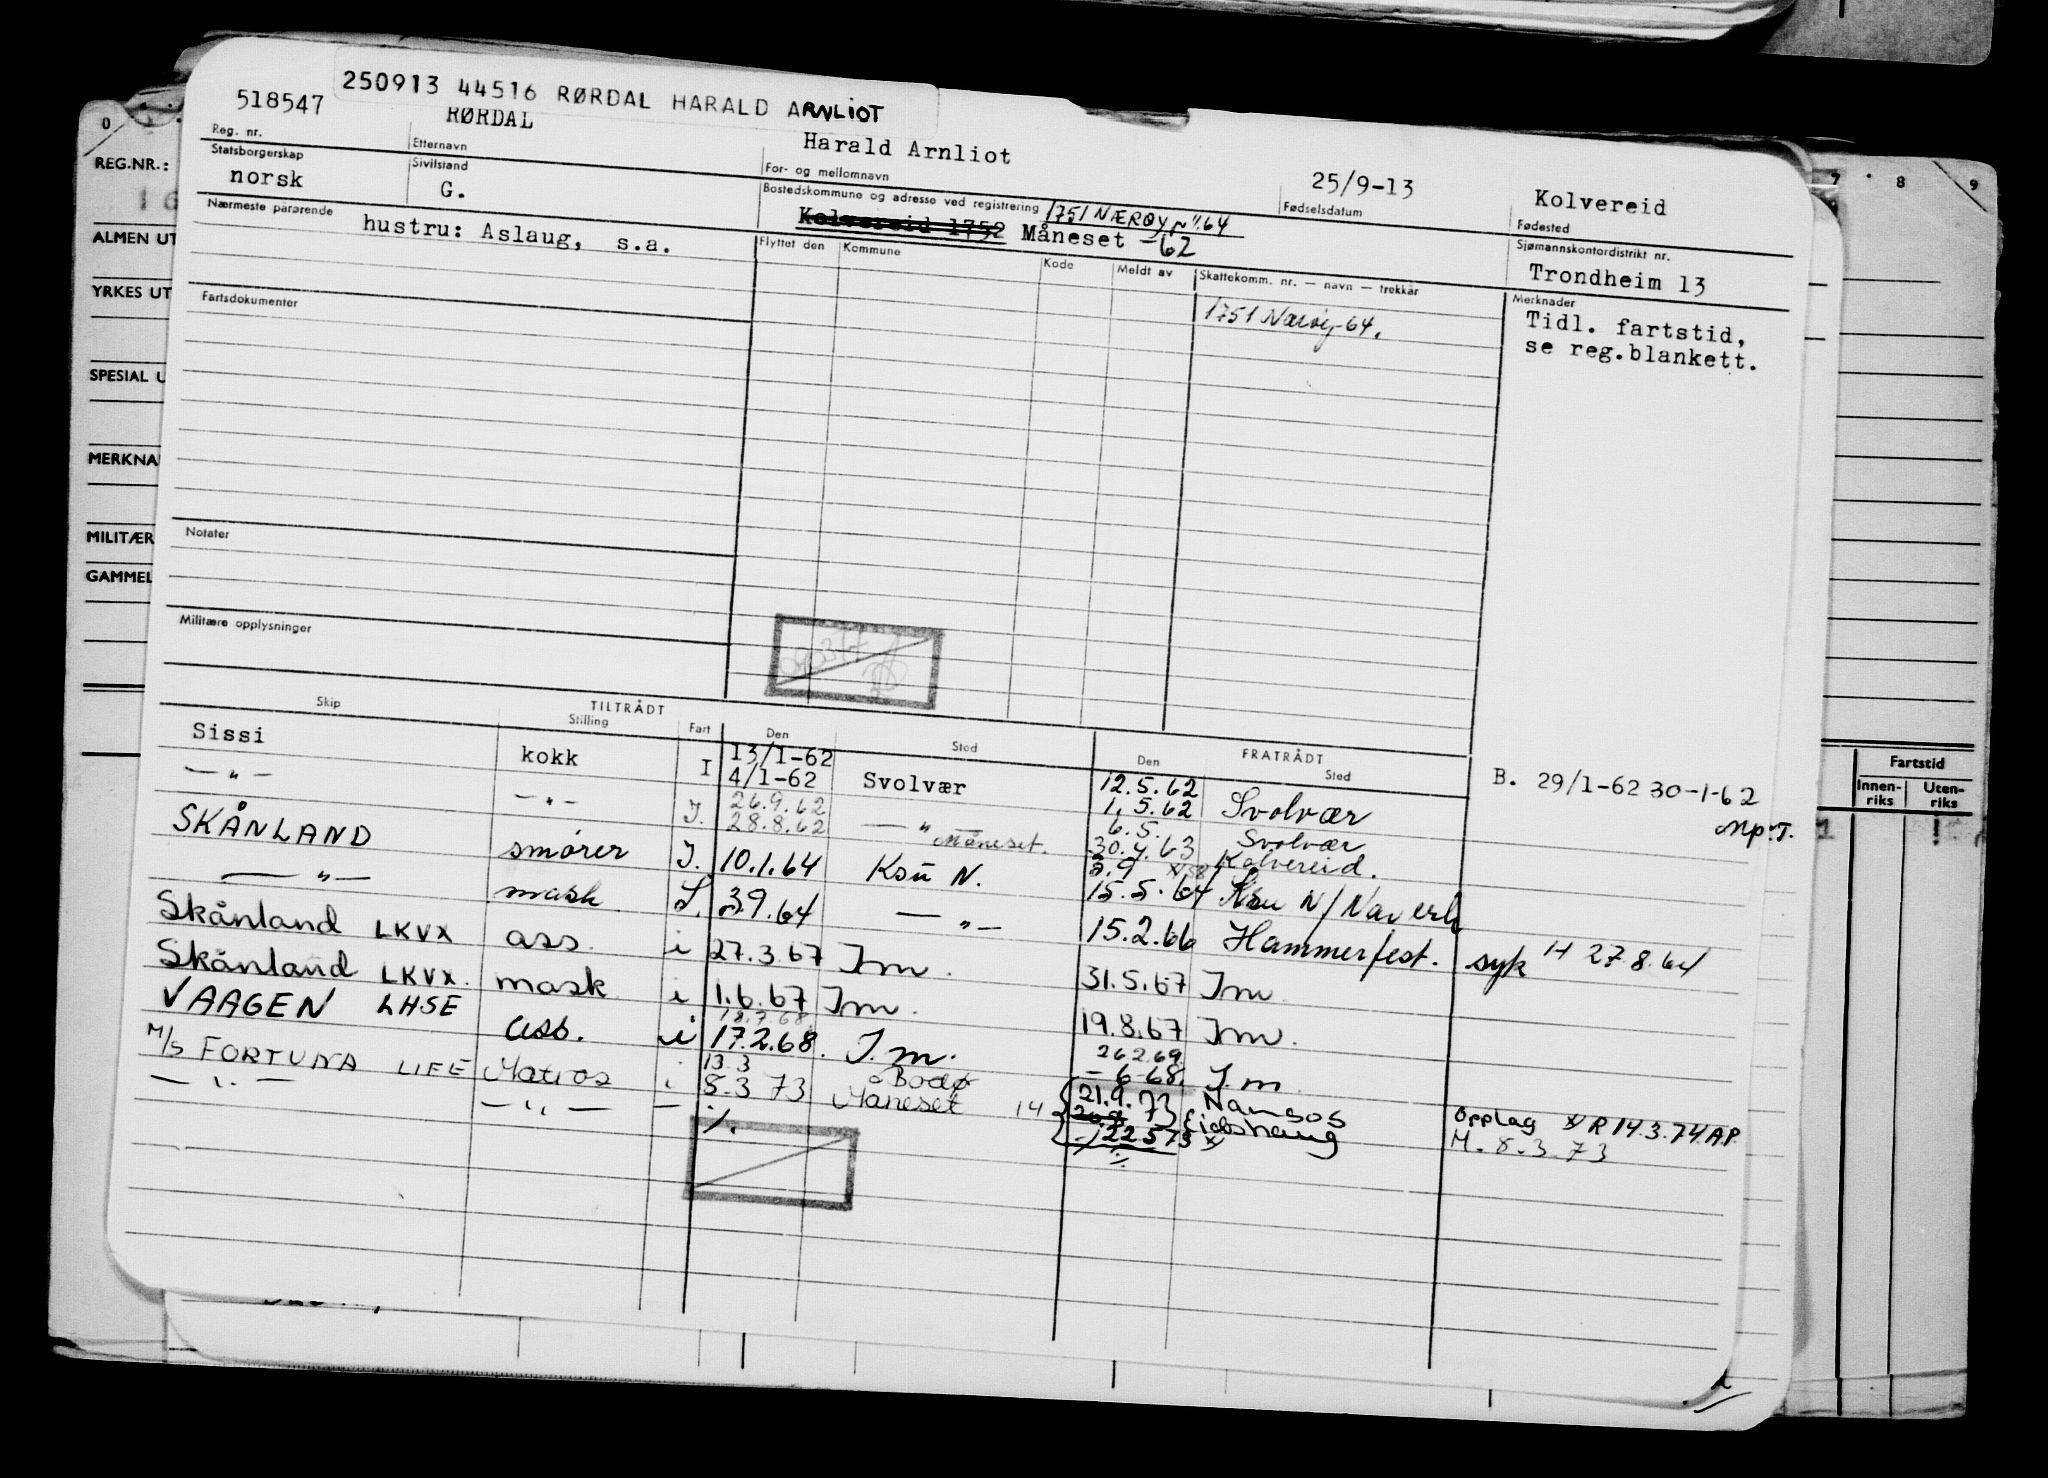 250913 44516 RØRDAL HARALD ARNLIOT
518547 RØRDAL Harald Arnliot 25/9-13 Kolvereid
Reg. nr. Etternavn For- og mellomnavn Fødselsdatum Fødested
Statsborgerskap Sivilstand Bostedskommune og adresse ved registrering Sjømannskontordistrikt nr.
norsk G. Kolvereid 1752 Måneset 1751 NÆRØY 64 -62 Trondheim 13
Nærmeste pårørende Flyttet den Kommune Kode Meldt av Skattekomm. nr. — navn — trekkår Merknader
hustru: Aslaug, s.a.
1751 Nærøy-64.
Tidl. fartstid,
se reg.blankett.
Fartsdokumenter
Notater
Militære opplysninger
TILTRÅDT FRATRÅDT
Skip Stilling Fart Den Sted Den Sted
Sissi kokk I 13/1-62 4/1-62 Svolvær 12.5.62 1.5.62 Svolvær B. 29/1-62 30-1-62
—"— —"— I. 26.9.62 28.8.62 —"— Måneset. 6.5. 30.4.63 Svolvær Kolvereid. Mp.T.
SKÅNLAND smører I. 10.1.64 Ksu N. 15.5.64 Ksu N/
—"— mask I. 3.9.64 —"— 15.2.66 Hammerfest. syk H 27.8.64
Skånland LKVX ass. i 27.3.67 Im. 31.5.67 Im
Skånland LKVX. mask i 1.6.67 Im. 19.8.67 Im.
VAAGEN LHSE ass. i 18.7.68 17.2.68. I.m. 26.2.69 -6-68. I.m.
M/S FORTUNA LIFE Matros i 13.3 8.3 73 Bodø Måneset 14 21.9.73 Namsos Opplag x R 14.3.74 AP.
—"— —"— — 22.5 73 x Eidshaug M. 8.3.73
0 7 8 9
REG.NR.:
ALMEN UT
YRKES UT
SPESIAL U
MERKNA
MILITÆR
GAMMEL
Fartstid
Innen-riks Uten-riks